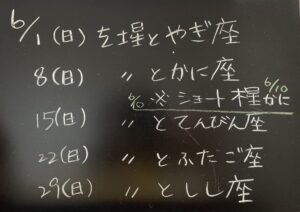 6/1(日)を堤とやぎ座
8(日)〃とかに座
6/10
6/0 ※ショート 程 かに
15(日)〃とてんびん座
22(日)〃とふたご座
29(日)〃としし座